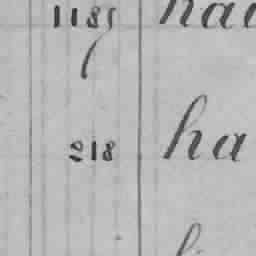 1185 hai
218 ha